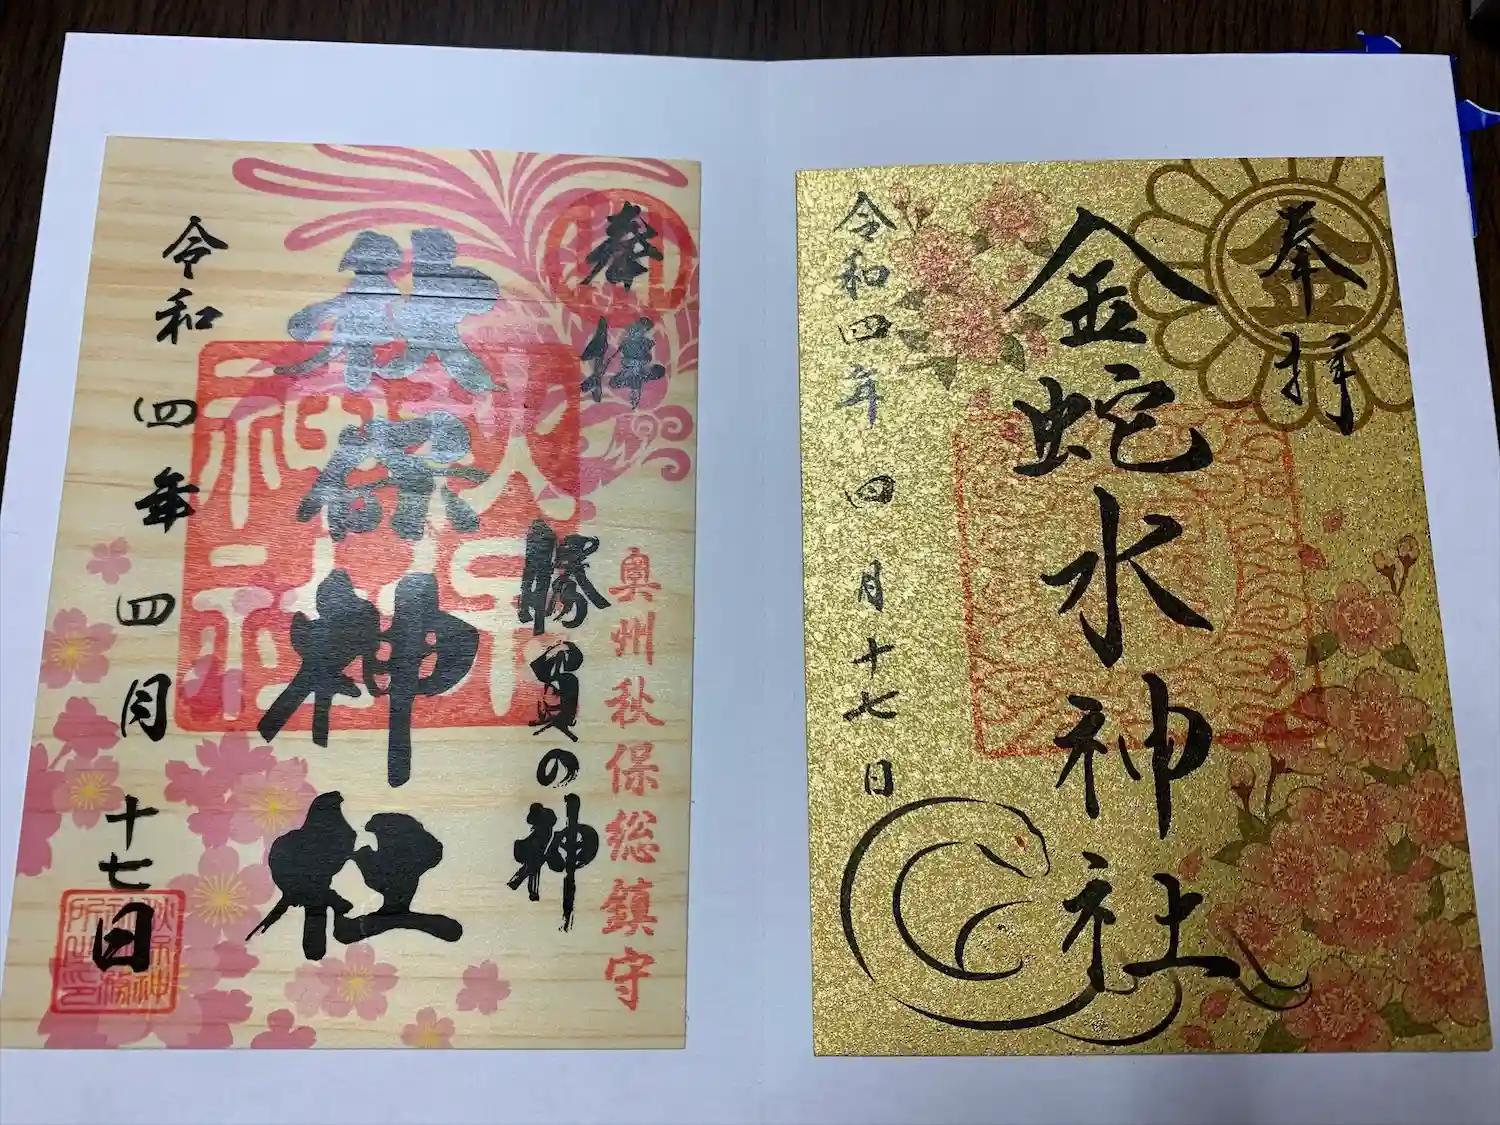 奉拝
奥州秋保総鎮守
勝負の神
秋保神社
令和四年四月十七日
奉拝
金蛇水神社
令和四年四月十七日